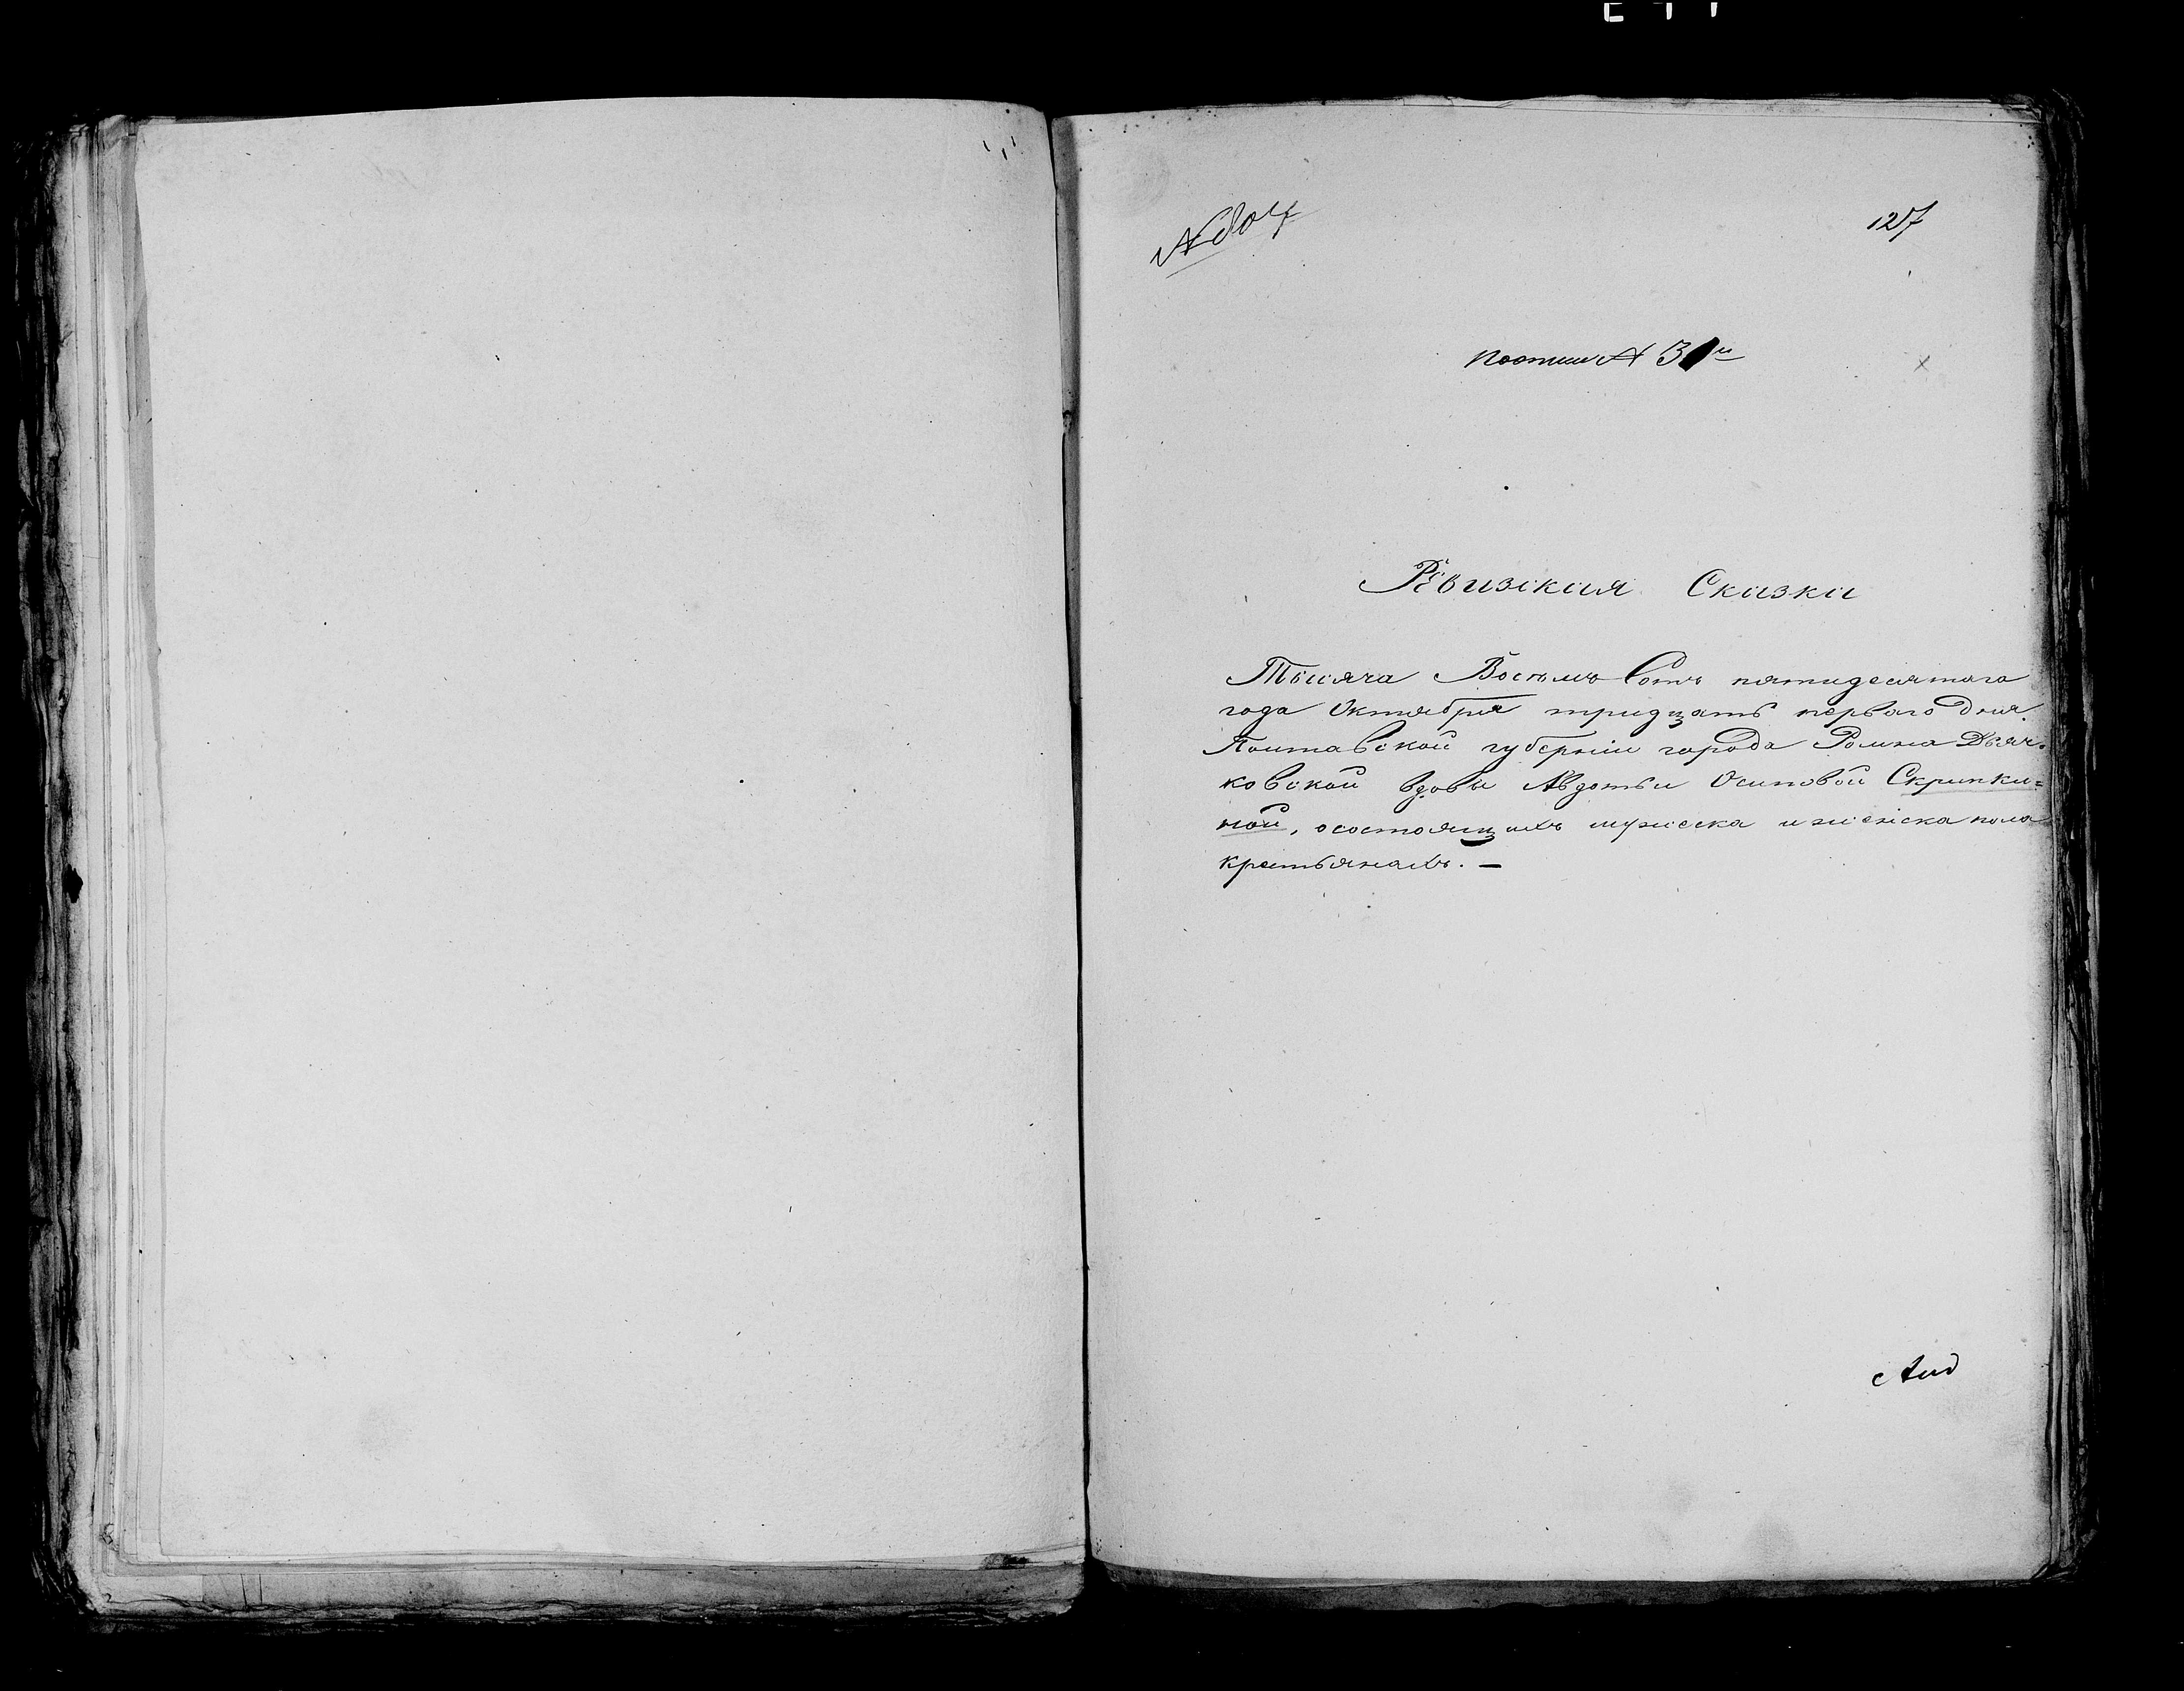 N 807
127
N 31
Ревизская Сказка
Тысяча Восемъ Сотъ пятидесятаго
года Октября тридцать перваго дня.
Полтавской губерніи города Ромна Дьяч-
ковской вдовы Авдотьи Осиповой Скрипки=
ной, осостоящихъ мужеска и женска пола
крестьянахъ. —